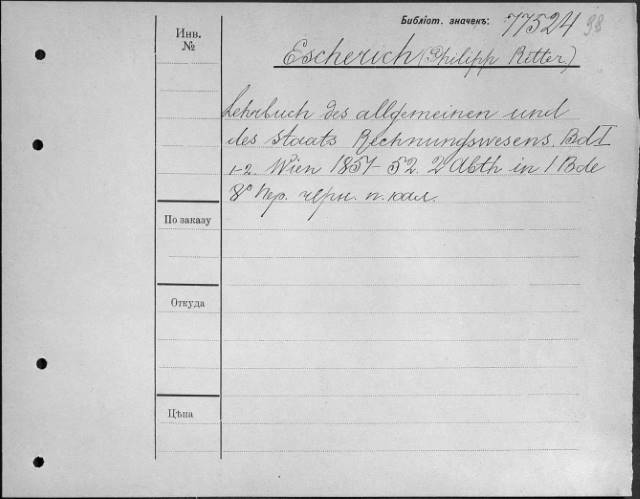 Библіот. значекъ: 77524 98
Инв.
№
Escherich (Philipp Ritter)
Lehrbuch des allgemeinen und
des Staats Rechnungswesens. Bd I
1-2. Wien 1851-52. 2 Abth in 1 Bde
8° Пер. черн. п. кал.
По заказу
Откуда
Цѣна